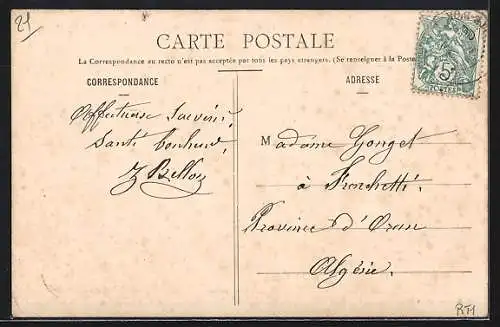 21
CARTE POSTALE
La Correspondance au recto n'est pas acceptée par tous les pays étrangers. (Se renseigner à la Poste
CORRESPONDANCE
ADRESSE
Affectueux souvenir,
Santé bonheur,
Bellon
Madame Gonget
à
Province d'Oran
Algérie.
5
POSTES